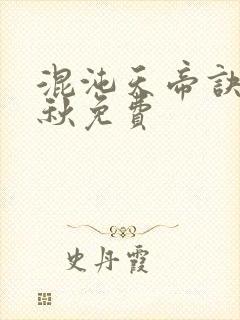 混沌天帝訣
秋免費
史丹霞